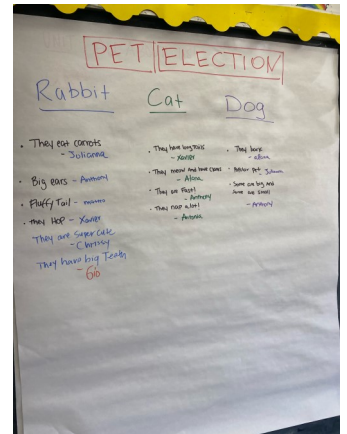 PET ELECTION
Rabbit
• They eat carrots
- Julianna
• Big ears - Anthony
• Fluffy Tail -
• They HOP - Xavier
They are super cute
- Chrissy
They have big Teeth
- Gio
Cat
• They have big tails
- Xavier
• They meow and have claws
- Alana
• They are Fast!
- Anthony
• They nap a lot!
- Antonia
Dog
• They bark
- Alana
• Popular pet - Julianna
• Some are big and
Some are small
- Anthony